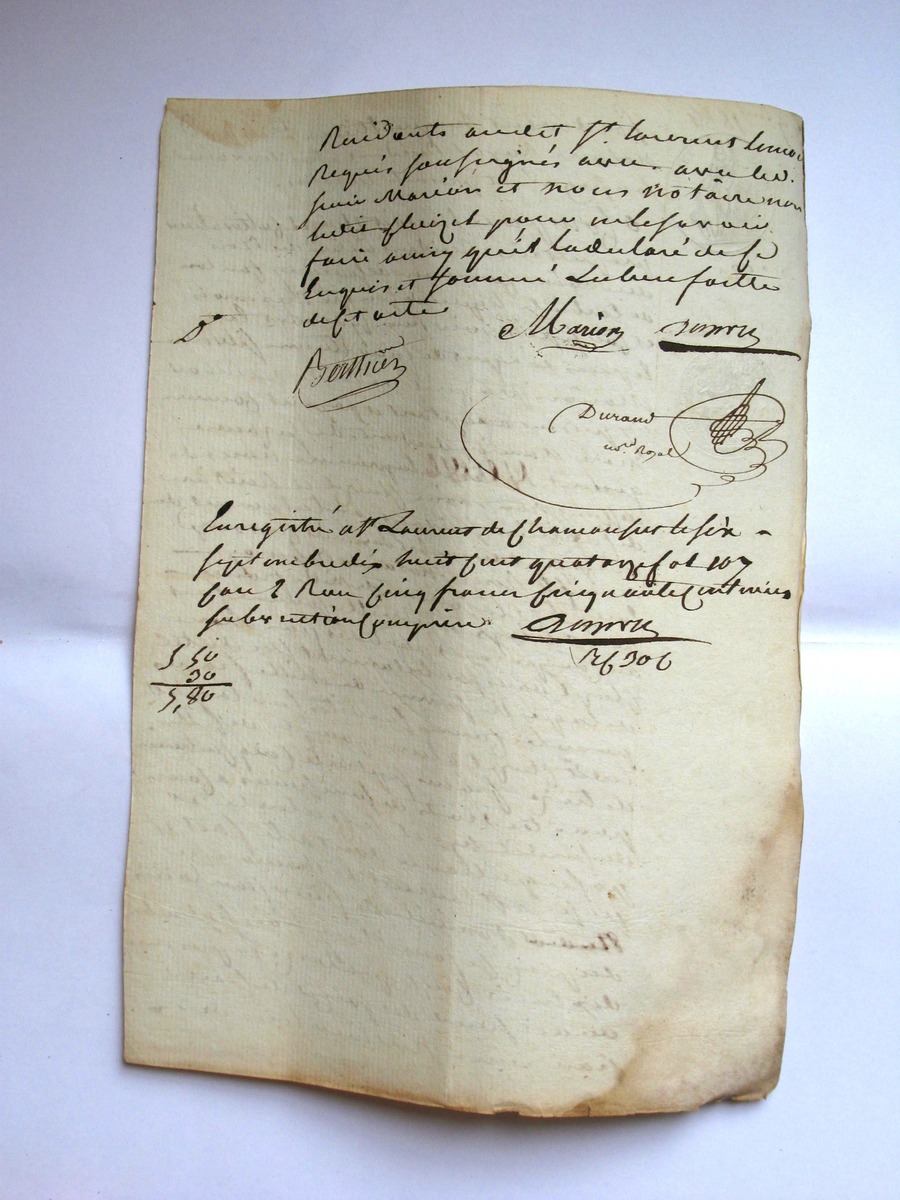 Residants audit St. Laurent temoins
Requis soussignés avec ledit.
sieur Marion et nous notaire non
ledit pour ne le savoir
faire ainsy qu'il la declaré de ce
Enquis et sommé
dest acte
Marion
Berthier
Durand
no.re Royal
Enregistré a St Laurent de Chamousset le six
septembre dix huit cent quatorze fol 107
case 2 Reçu cinq francs cinquante centimes
subvention comprise
5 50
30
5,80